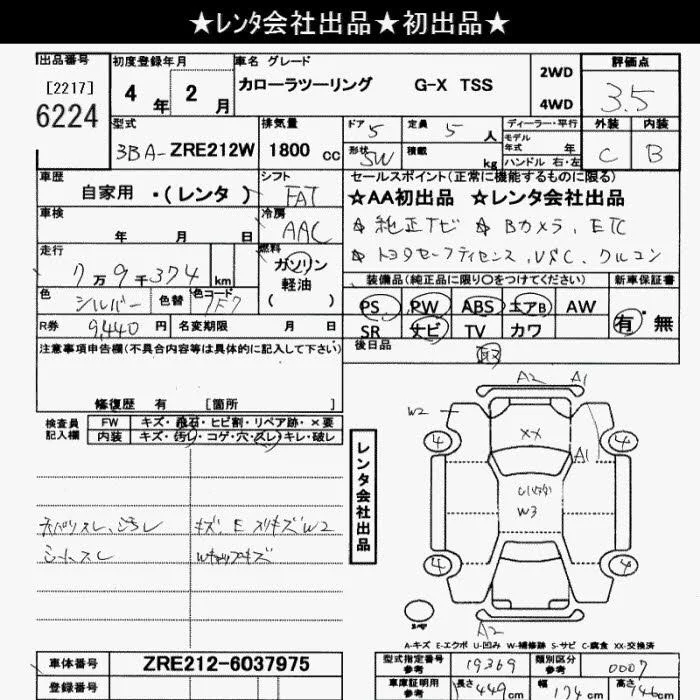 ★レンタ会社出品★初出品★
出品番号
[2217]
6224
初度登録年月
4年 2月
車名 グレード
カローラツーリング G-X TSS
2WD
4WD
評価点
3.5
外装 内装
C B
型式
3BA-ZRE212W
排気量
1800 cc
ドア 5
定員 5 人
形状 SW
積載 kg
ディーラー・平行
モデル年式 年
ハンドル 右・左
車歴
自家用 ・(レンタ )
シフト
FAT
車検
年 月 日
冷房
AAC
走行
7万9千374 km
燃料
ガソリン
軽油
( )
色
シルバー
色替
色コード
1F7
R券 9,440 円
名変期限 月 日
セールスポイント(正常に機能するものに限る)
☆AA初出品 ★レンタ会社出品
☆ 純正ナビ ☆ Bカメラ、ETC
☆ トヨタセーフティセンス、VSC、クルコン
装備品(純正品に限り○をつけてください)
PS PW ABS エアB AW
SR ナビ TV カワ
新車保証書
有・無
後日品
取
注意事項申告欄(不具合内容等は具体的に記入して下さい)
修復歴 有 [箇所 ]
検査員記入欄
FW キズ・飛石・ヒビ割・リペア跡・×要
内装 キズ・汚レ・コゲ・穴・スレ・キレ・破レ
内ハリスレ、ヨゴレ
シートスレ
キズ、E スリキズW2
Wキャップキズ
レンタ会社出品
A2 A1
W2
XX
A1
W3
4 4
4 4
A2
スペア
A-キズ E-エクボ U-凹み W-補修跡 S-サビ C-腐食 XX-交換済
車体番号 ZRE212-6037975
登録番号
型式指定番号 参考 19369
類別区分 参考 0007
車庫証明用 参考
長さ 449 cm
幅 174 cm
高さ 146 cm